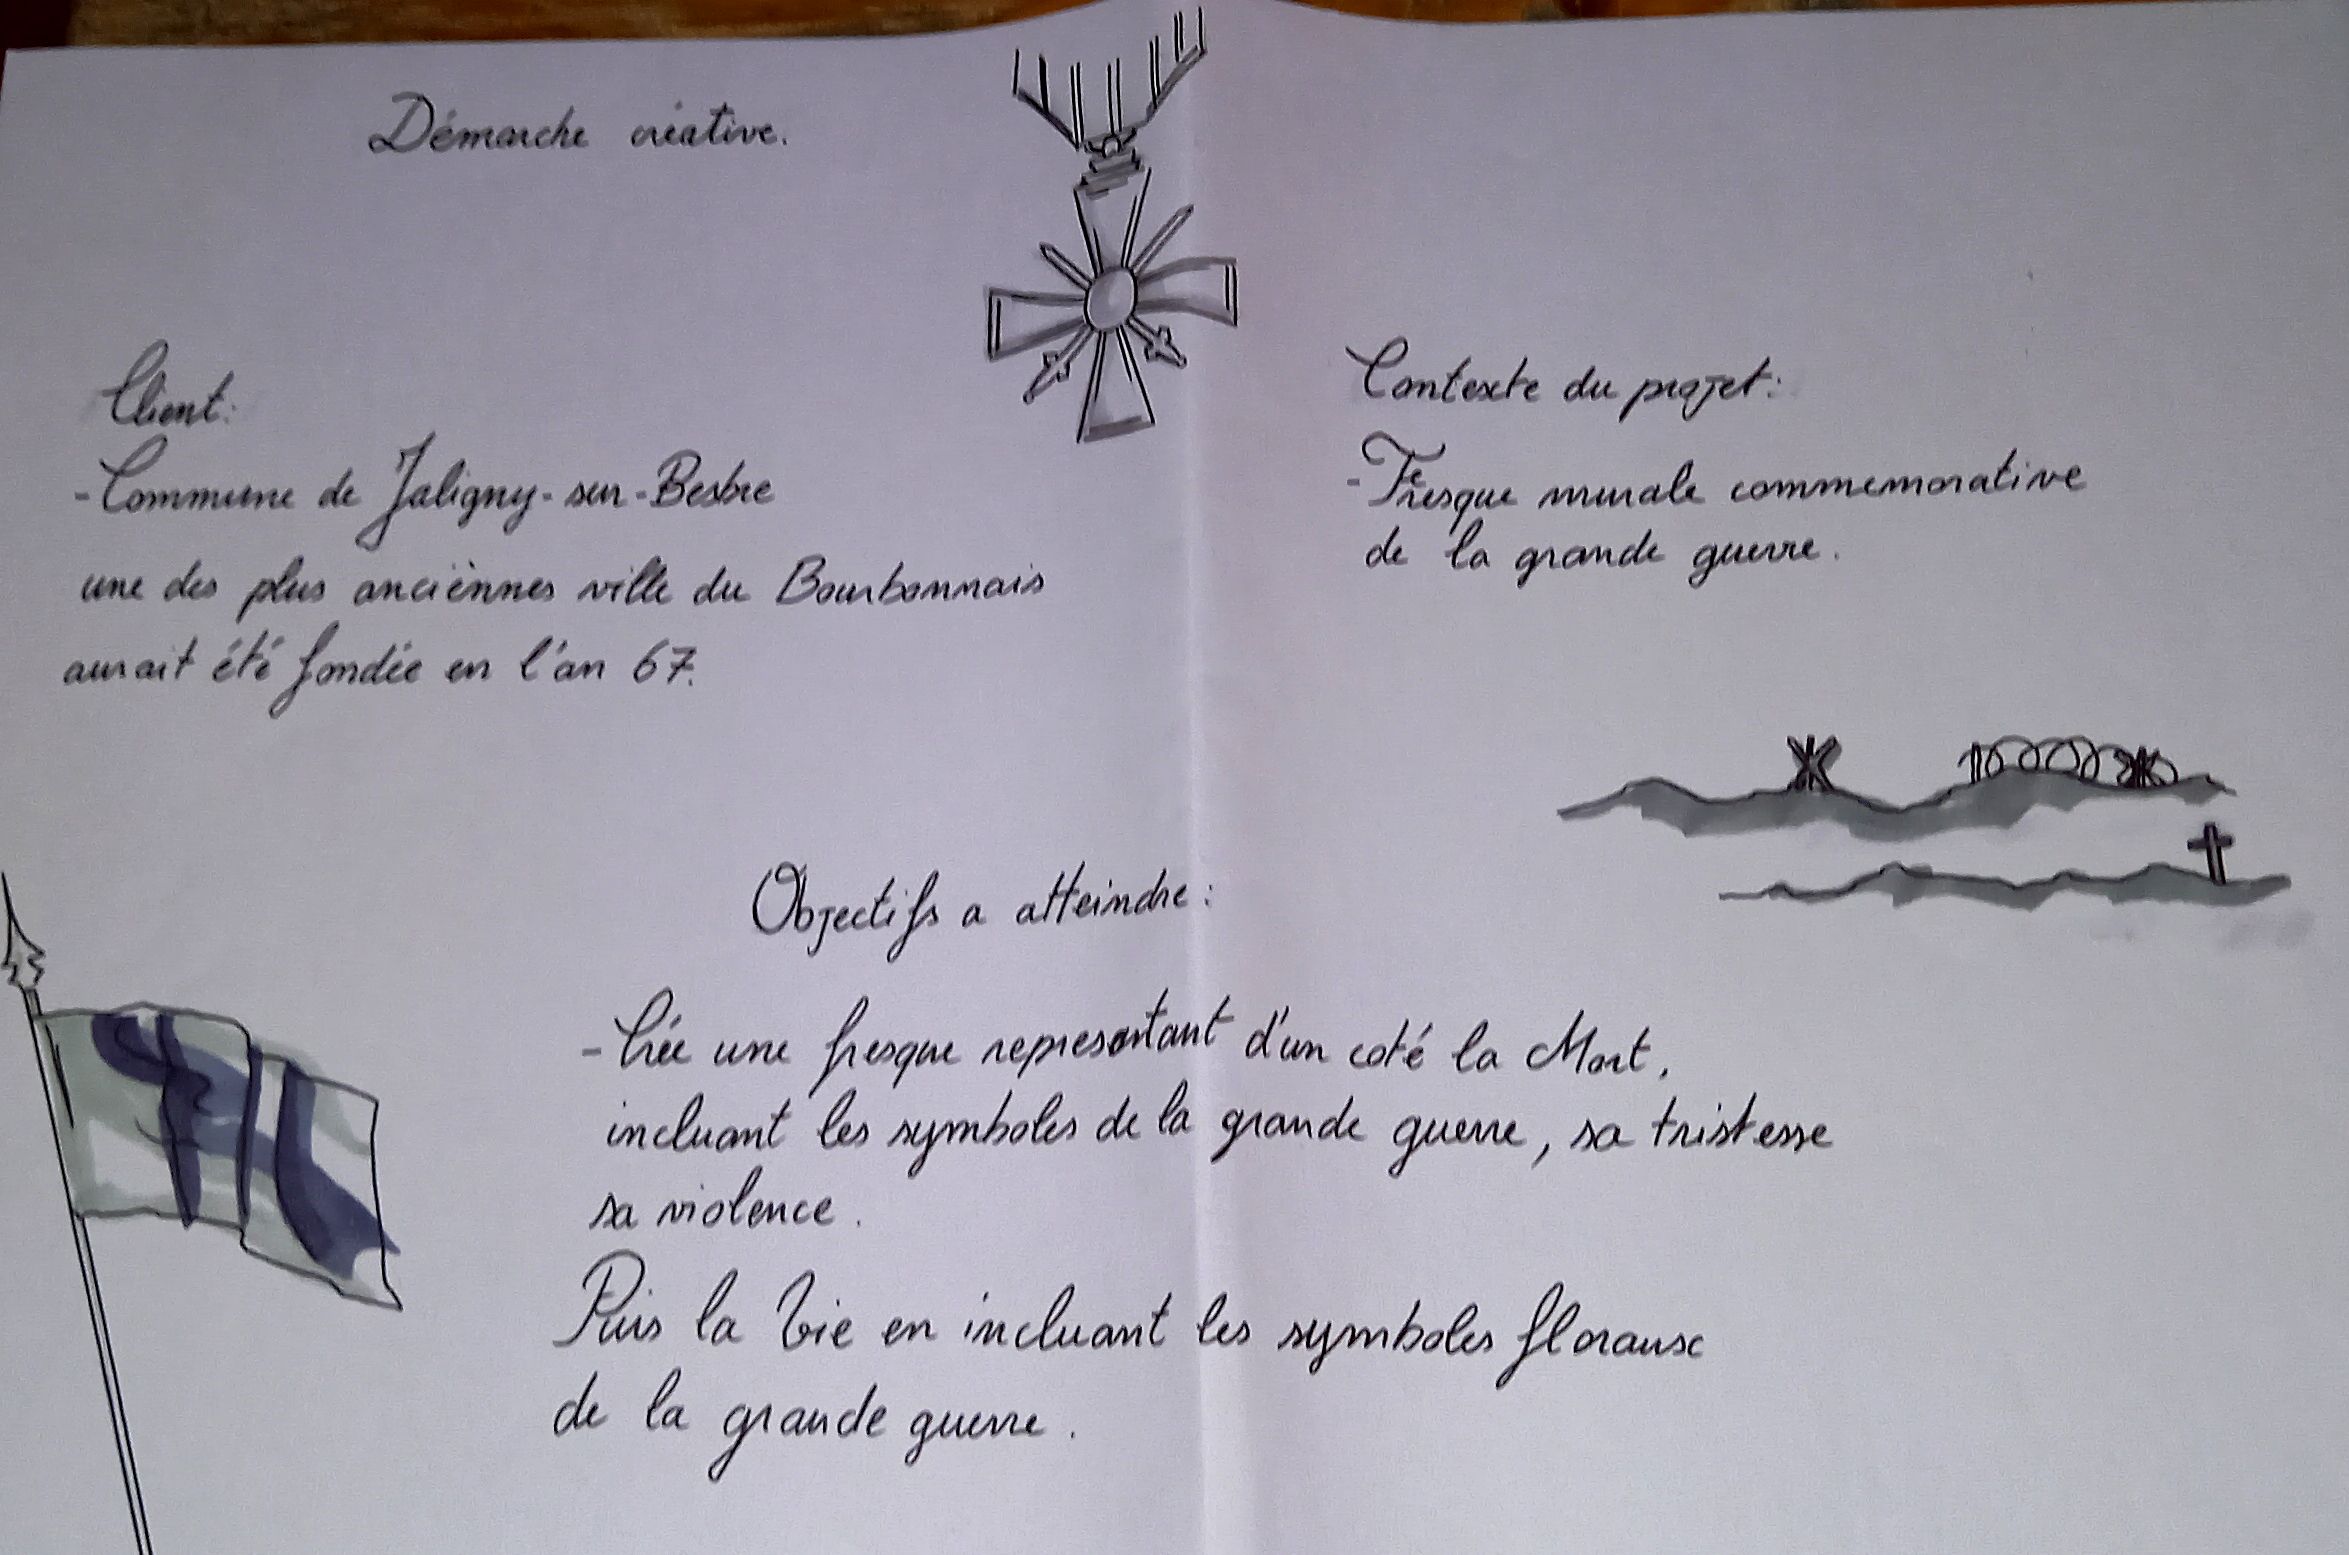 Démarche créative.
Client:
- Commune de Jaligny-sur-Besbre
une des plus anciènnes ville du Bourbonnais
aurait été fondée en l'an 67.
Contexte du projet:
- Fresque murale commemorative
de la grande guerre.
Objectifs a atteindre:
- Crée une fresque represantant d'un coté la Mort,
incluant les symboles de la grande guerre, sa tristesse
sa violence.
Puis la Vie en incluant les symboles floraux
de la grande guerre.